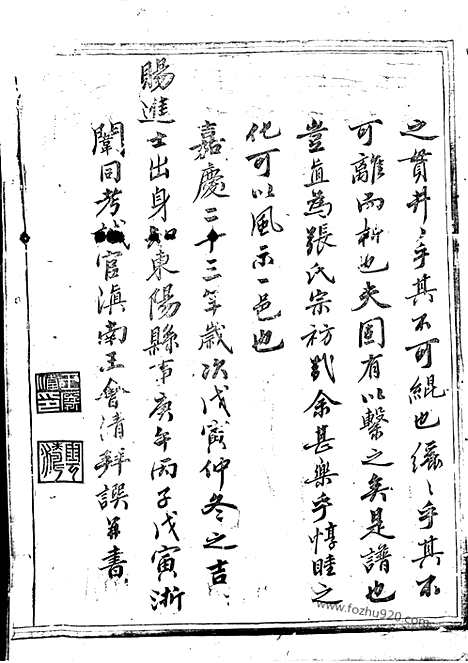 之貫井〻乎其不可緄也纚〻乎其不
可離而析也夫固有以繫之矣是譜也
豈直為張氏宗祊哉余甚樂乎惇睦之
化可以風示一邑也
嘉慶二十三年歲次戊寅仲冬之吉
賜進士出身知東陽縣事庚午丙子戊寅浙
闈同考試官滇南王會清拜譔并書
www.fozhu920.com